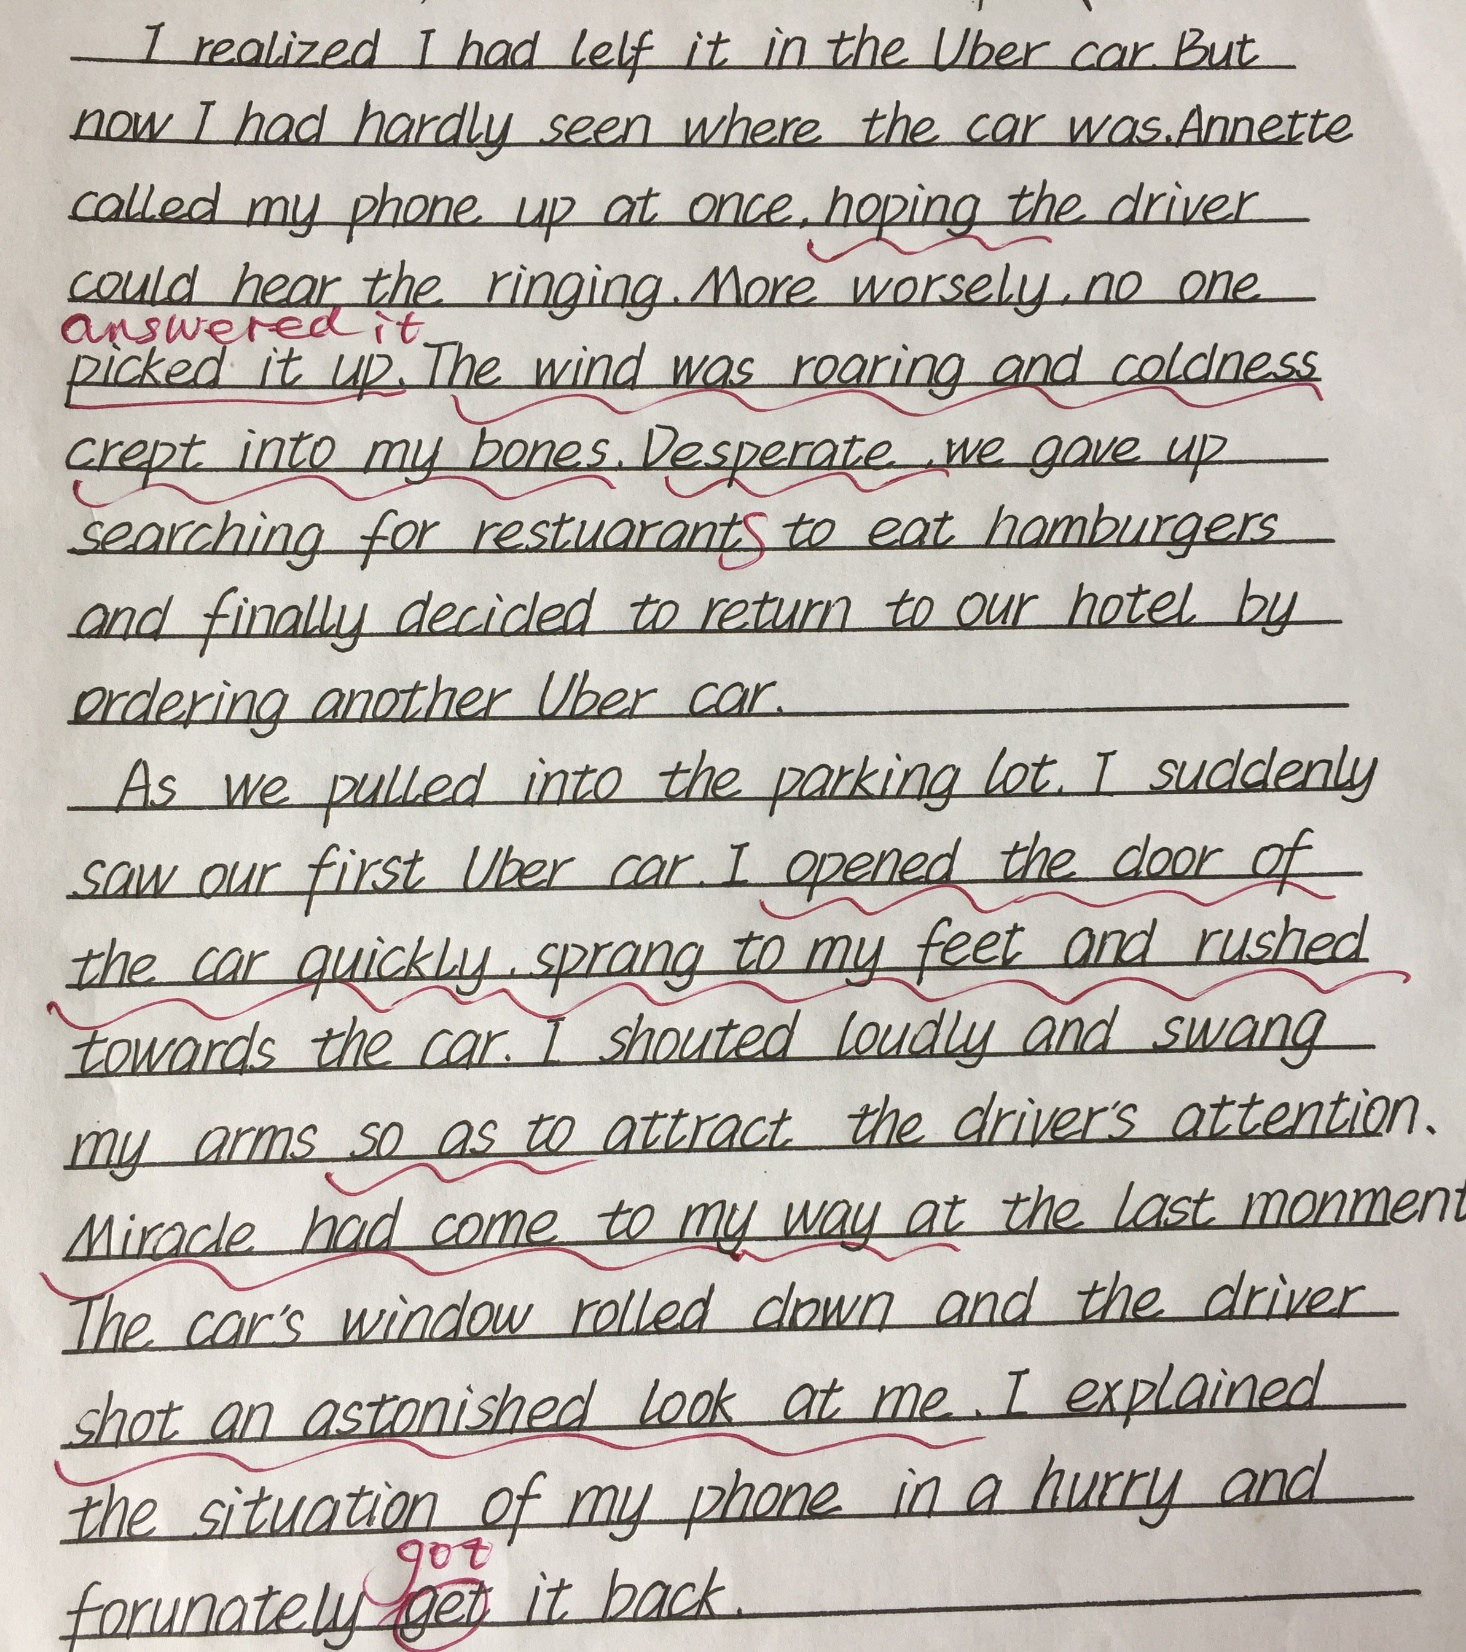 I realized I had lelf it in the Uber car. But
now I had hardly seen where the car was. Annette
called my phone up at once, hoping the driver
could hear the ringing. More worsely, no one
answered it
picked it up. The wind was roaring and coldness
crept into my bones. Desperate, we gave up
searching for restuarants to eat hamburgers
and finally decided to return to our hotel by
ordering another Uber car.
As we pulled into the parking lot. I suddenly
saw our first Uber car. I opened the door of
the car quickly, sprang to my feet and rushed
towards the car. I shouted loudly and swang
my arms so as to attract the driver's attention.
Miracle had come to my way at the last monment
The car's window rolled down and the driver
shot an astonished look at me. I explained
the situation of my phone in a hurry and
got
forunately get it back.